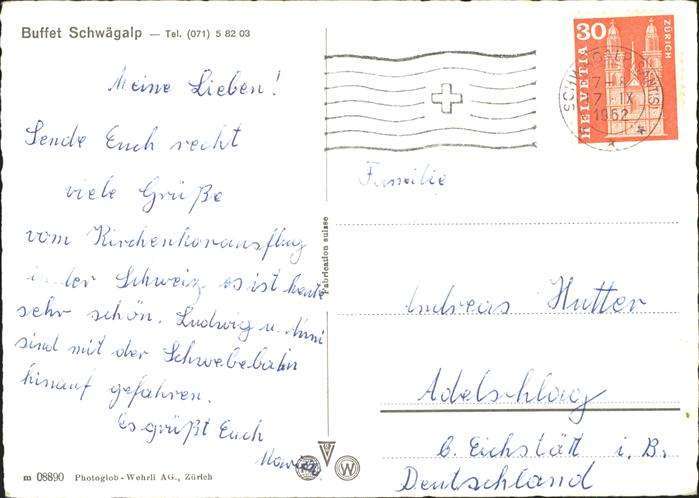 Buffet Schwägalp — Tel. (071) 5 82 03
Meine Lieben!
Sende Euch recht
viele Grüße
vom Kirchenchorausflug
in der Schweiz es ist heute
sehr schön. Ludwig u. Anni
sind mit der Schwebebahn
hinauf gefahren.
Es grüßt Euch
m 08890 Photoglob-Wehrli AG., Zürich
Fabrication suisse
30
HELVETIA
ZÜRICH
7-IX
1962
Familie
Andreas Hutter
Adelschlag
b. Eichstätt i. B.
Deutschland
W